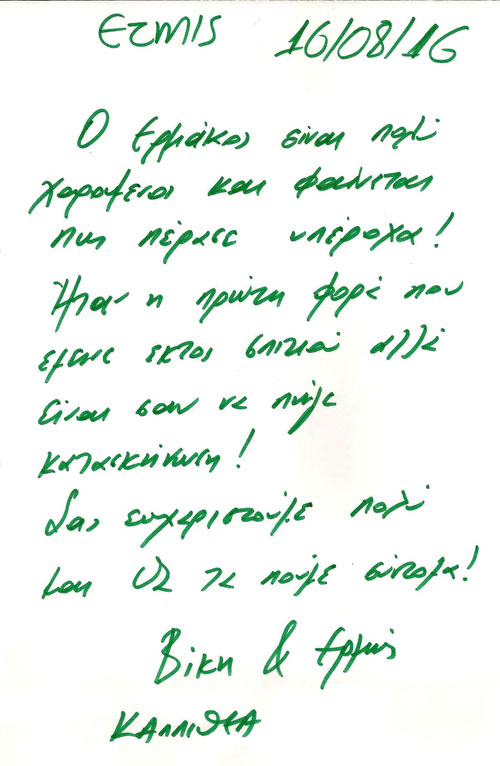 ΕΡΜΗΣ 16/08/16
Ο Ερμάκος είναι πολύ
χαρούμενος και φαίνεται
πως πέρασε υπέροχα!
Ήταν η πρώτη φορά που
έμενε εκτός σπιτιού αλλά
είναι σαν να πήγε
κατασκήνωση!
Σας ευχαριστούμε πολύ
και θα τα πούμε σύντομα!
Βίκη & Ερμής
ΚΑΛΛΙΘΕΑ